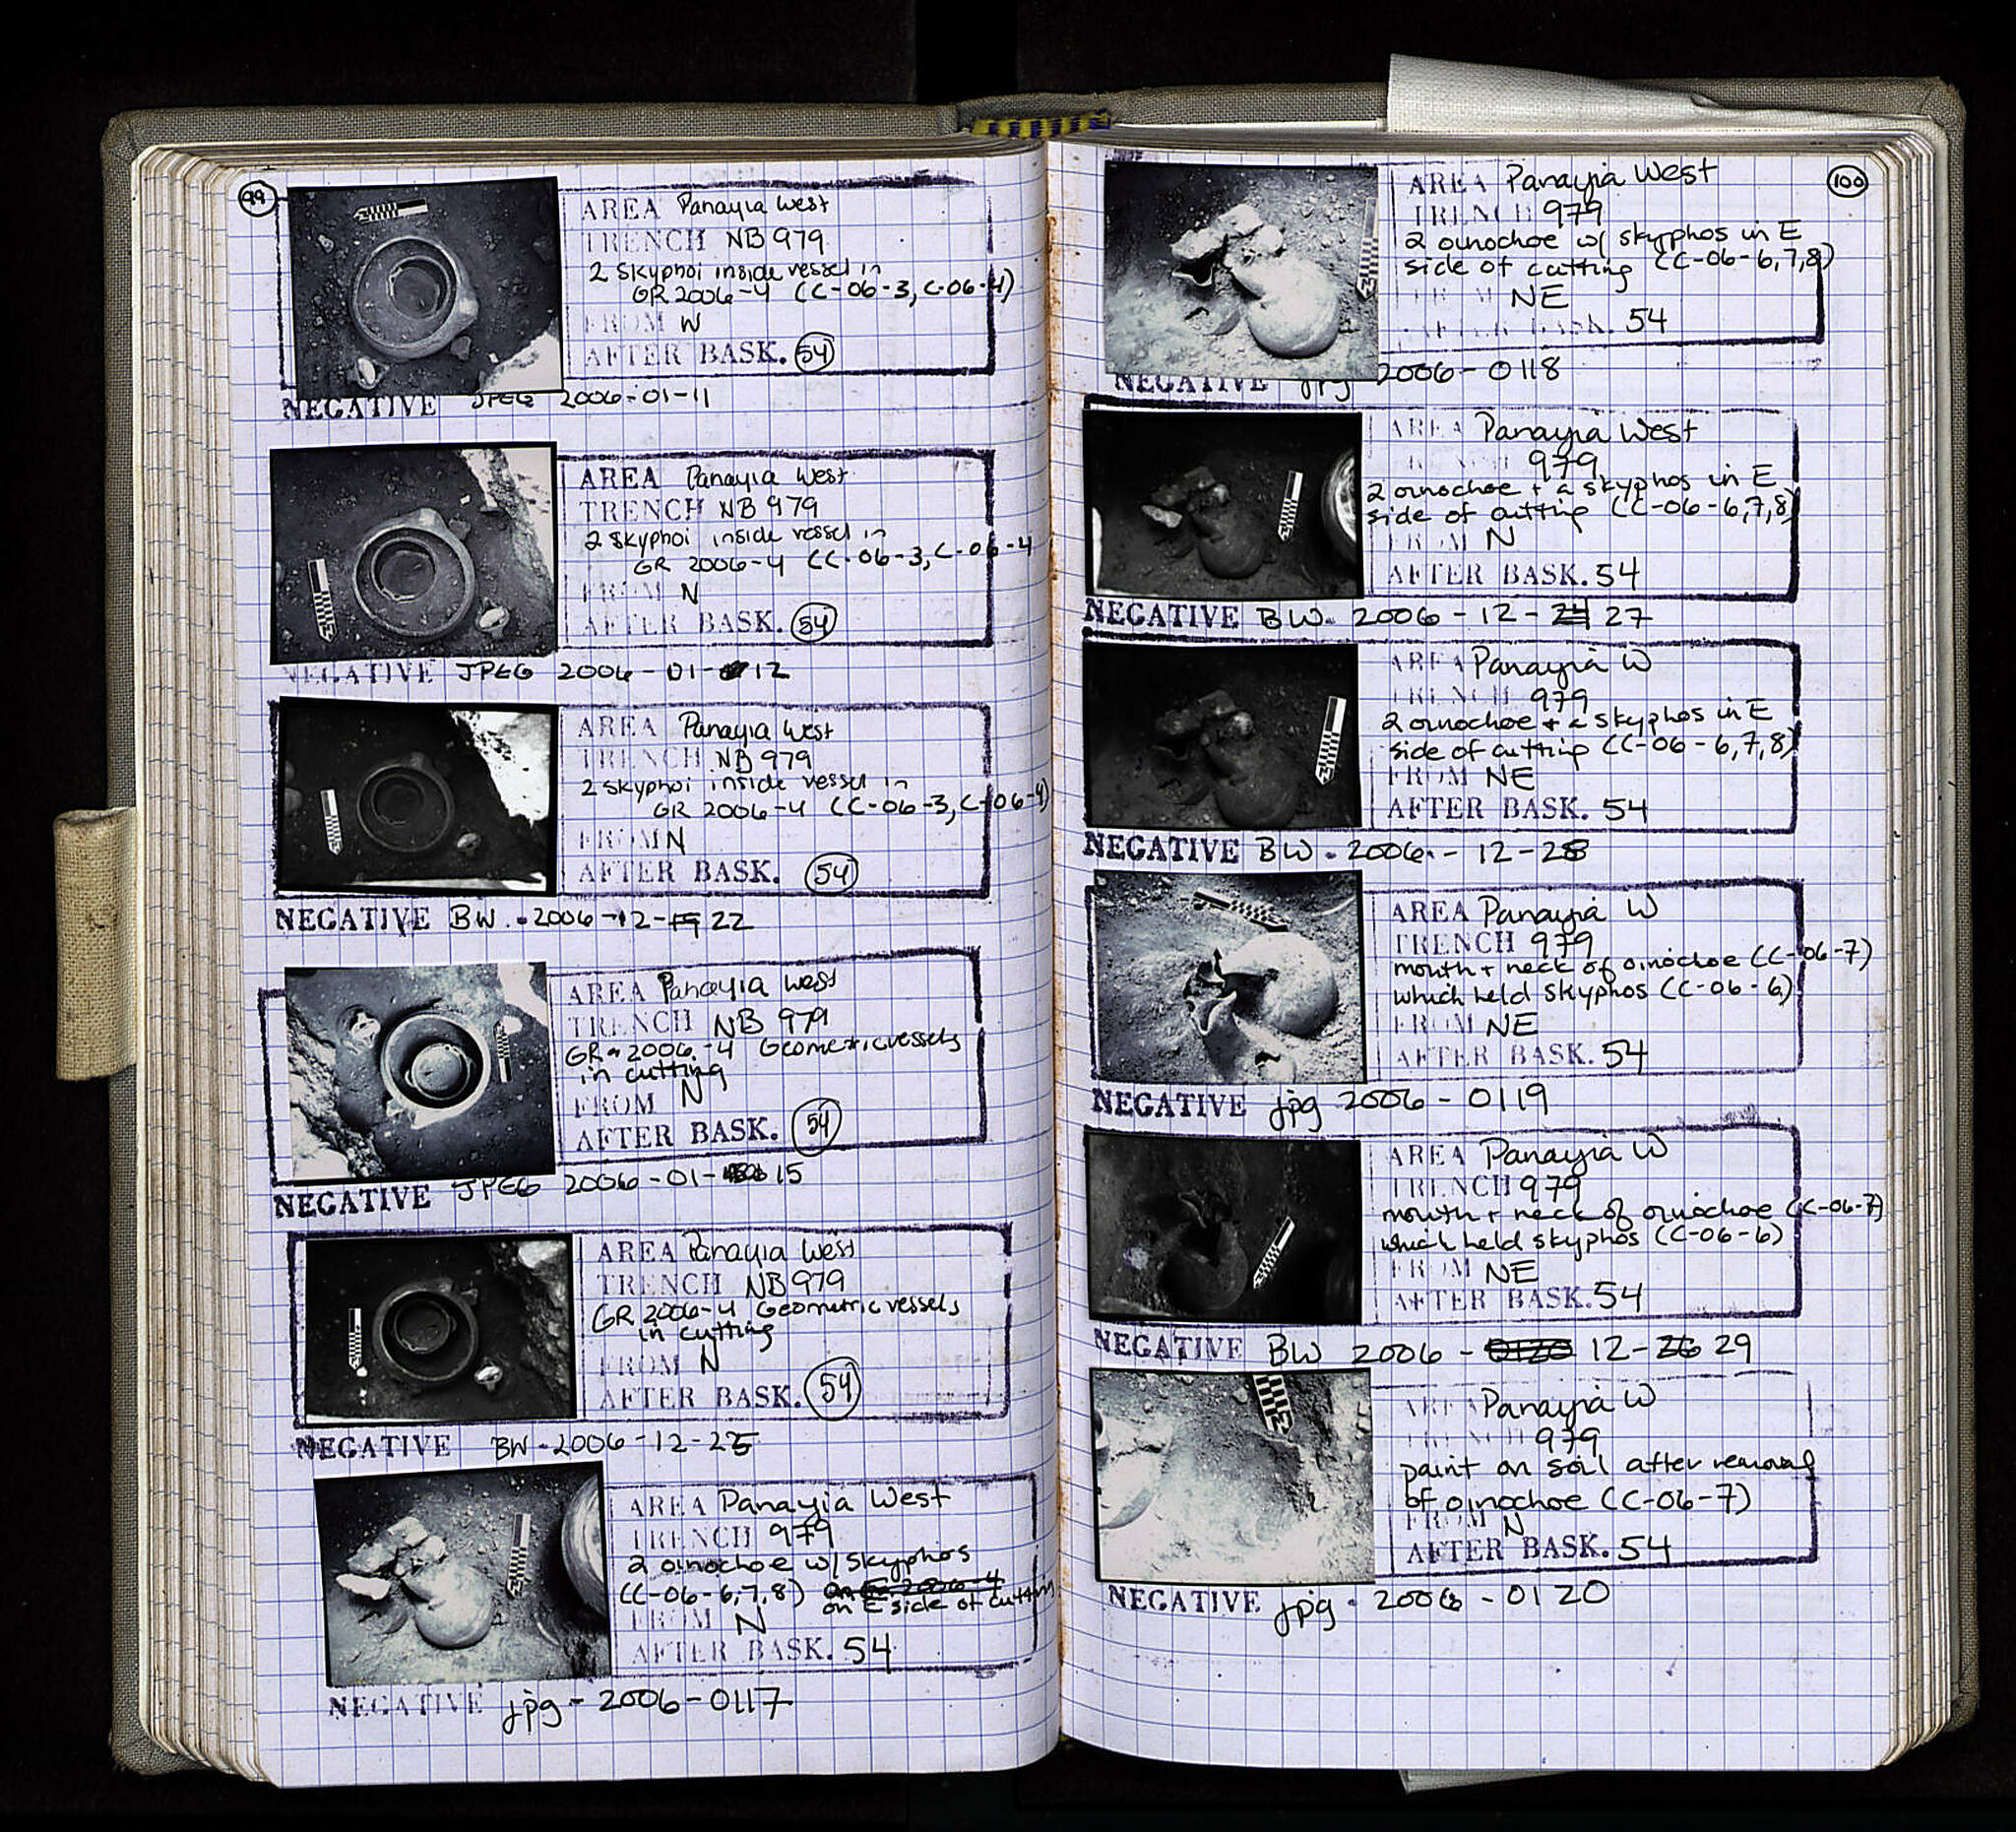 99
AREA Panayia West
TRENCH NB 979
2 skyphoi inside vessel in
GR 2006-4 (C-06-3, C-06-4)
FROM N
AFTER BASK. 54
NEGATIVE JPEG 2006-01-11
AREA Panayia West
TRENCH NB 979
2 skyphoi inside vessel in
GR 2006-4 (C-06-3, C-06-4
FROM N
AFTER BASK. 54
NEGATIVE JPEG 2006-01-12
AREA Panayia West
TRENCH NB 979
2 skyphoi inside vessel in
GR 2006-4 (C-06-3, C-06-4)
FROM N
AFTER BASK. 54
NEGATIVE BW-2006-12-19 22
AREA Panayia West
TRENCH NB 979
GR-2006-4 Geometric vessels
in cutting
FROM N
AFTER BASK. 54
NEGATIVE JPEG 2006-01-15
AREA Panayia West
TRENCH NB 979
GR 2006-4 Geometric vessels
in cutting
FROM N
AFTER BASK. 54
NEGATIVE BW-2006-12-25
AREA Panayia West
TRENCH 979
2 oinochoe w/ skyphos
(C-06-6,7,8)
on E side of cutting
FROM N
AFTER BASK. 54
NEGATIVE jpg-2006-0117
100
AREA Panayia West
TRENCH 979
2 oinochoe w/ skyphos in E
side of cutting (C-06-6,7,8)
FROM NE
AFTER BASK. 54
NEGATIVE jpg 2006-0118
AREA Panayia West
TRENCH 979
2 oinochoe + a skyphos in E
side of cutting (C-06-6,7,8)
FROM N
AFTER BASK. 54
NEGATIVE BW-2006-12-24 27
AREA Panayia W
TRENCH 979
2 oinochoe + a skyphos in E
side of cutting (C-06-6,7,8)
FROM NE
AFTER BASK. 54
NEGATIVE BW-2006-12-28
AREA Panayia W
TRENCH 979
mouth + neck of oinochoe (C-06-7)
which held skyphos (C-06-6)
FROM NE
AFTER BASK. 54
NEGATIVE jpg 2006-0119
AREA Panayia W
TRENCH 979
mouth + neck of oinochoe (C-06-7)
which held skyphos (C-06-6)
FROM NE
AFTER BASK. 54
NEGATIVE BW 2006-0120 12-26 29
AREA Panayia W
TRENCH 979
paint on soil after removal
of oinochoe (C-06-7)
FROM N
AFTER BASK. 54
NEGATIVE jpg-2006-0120